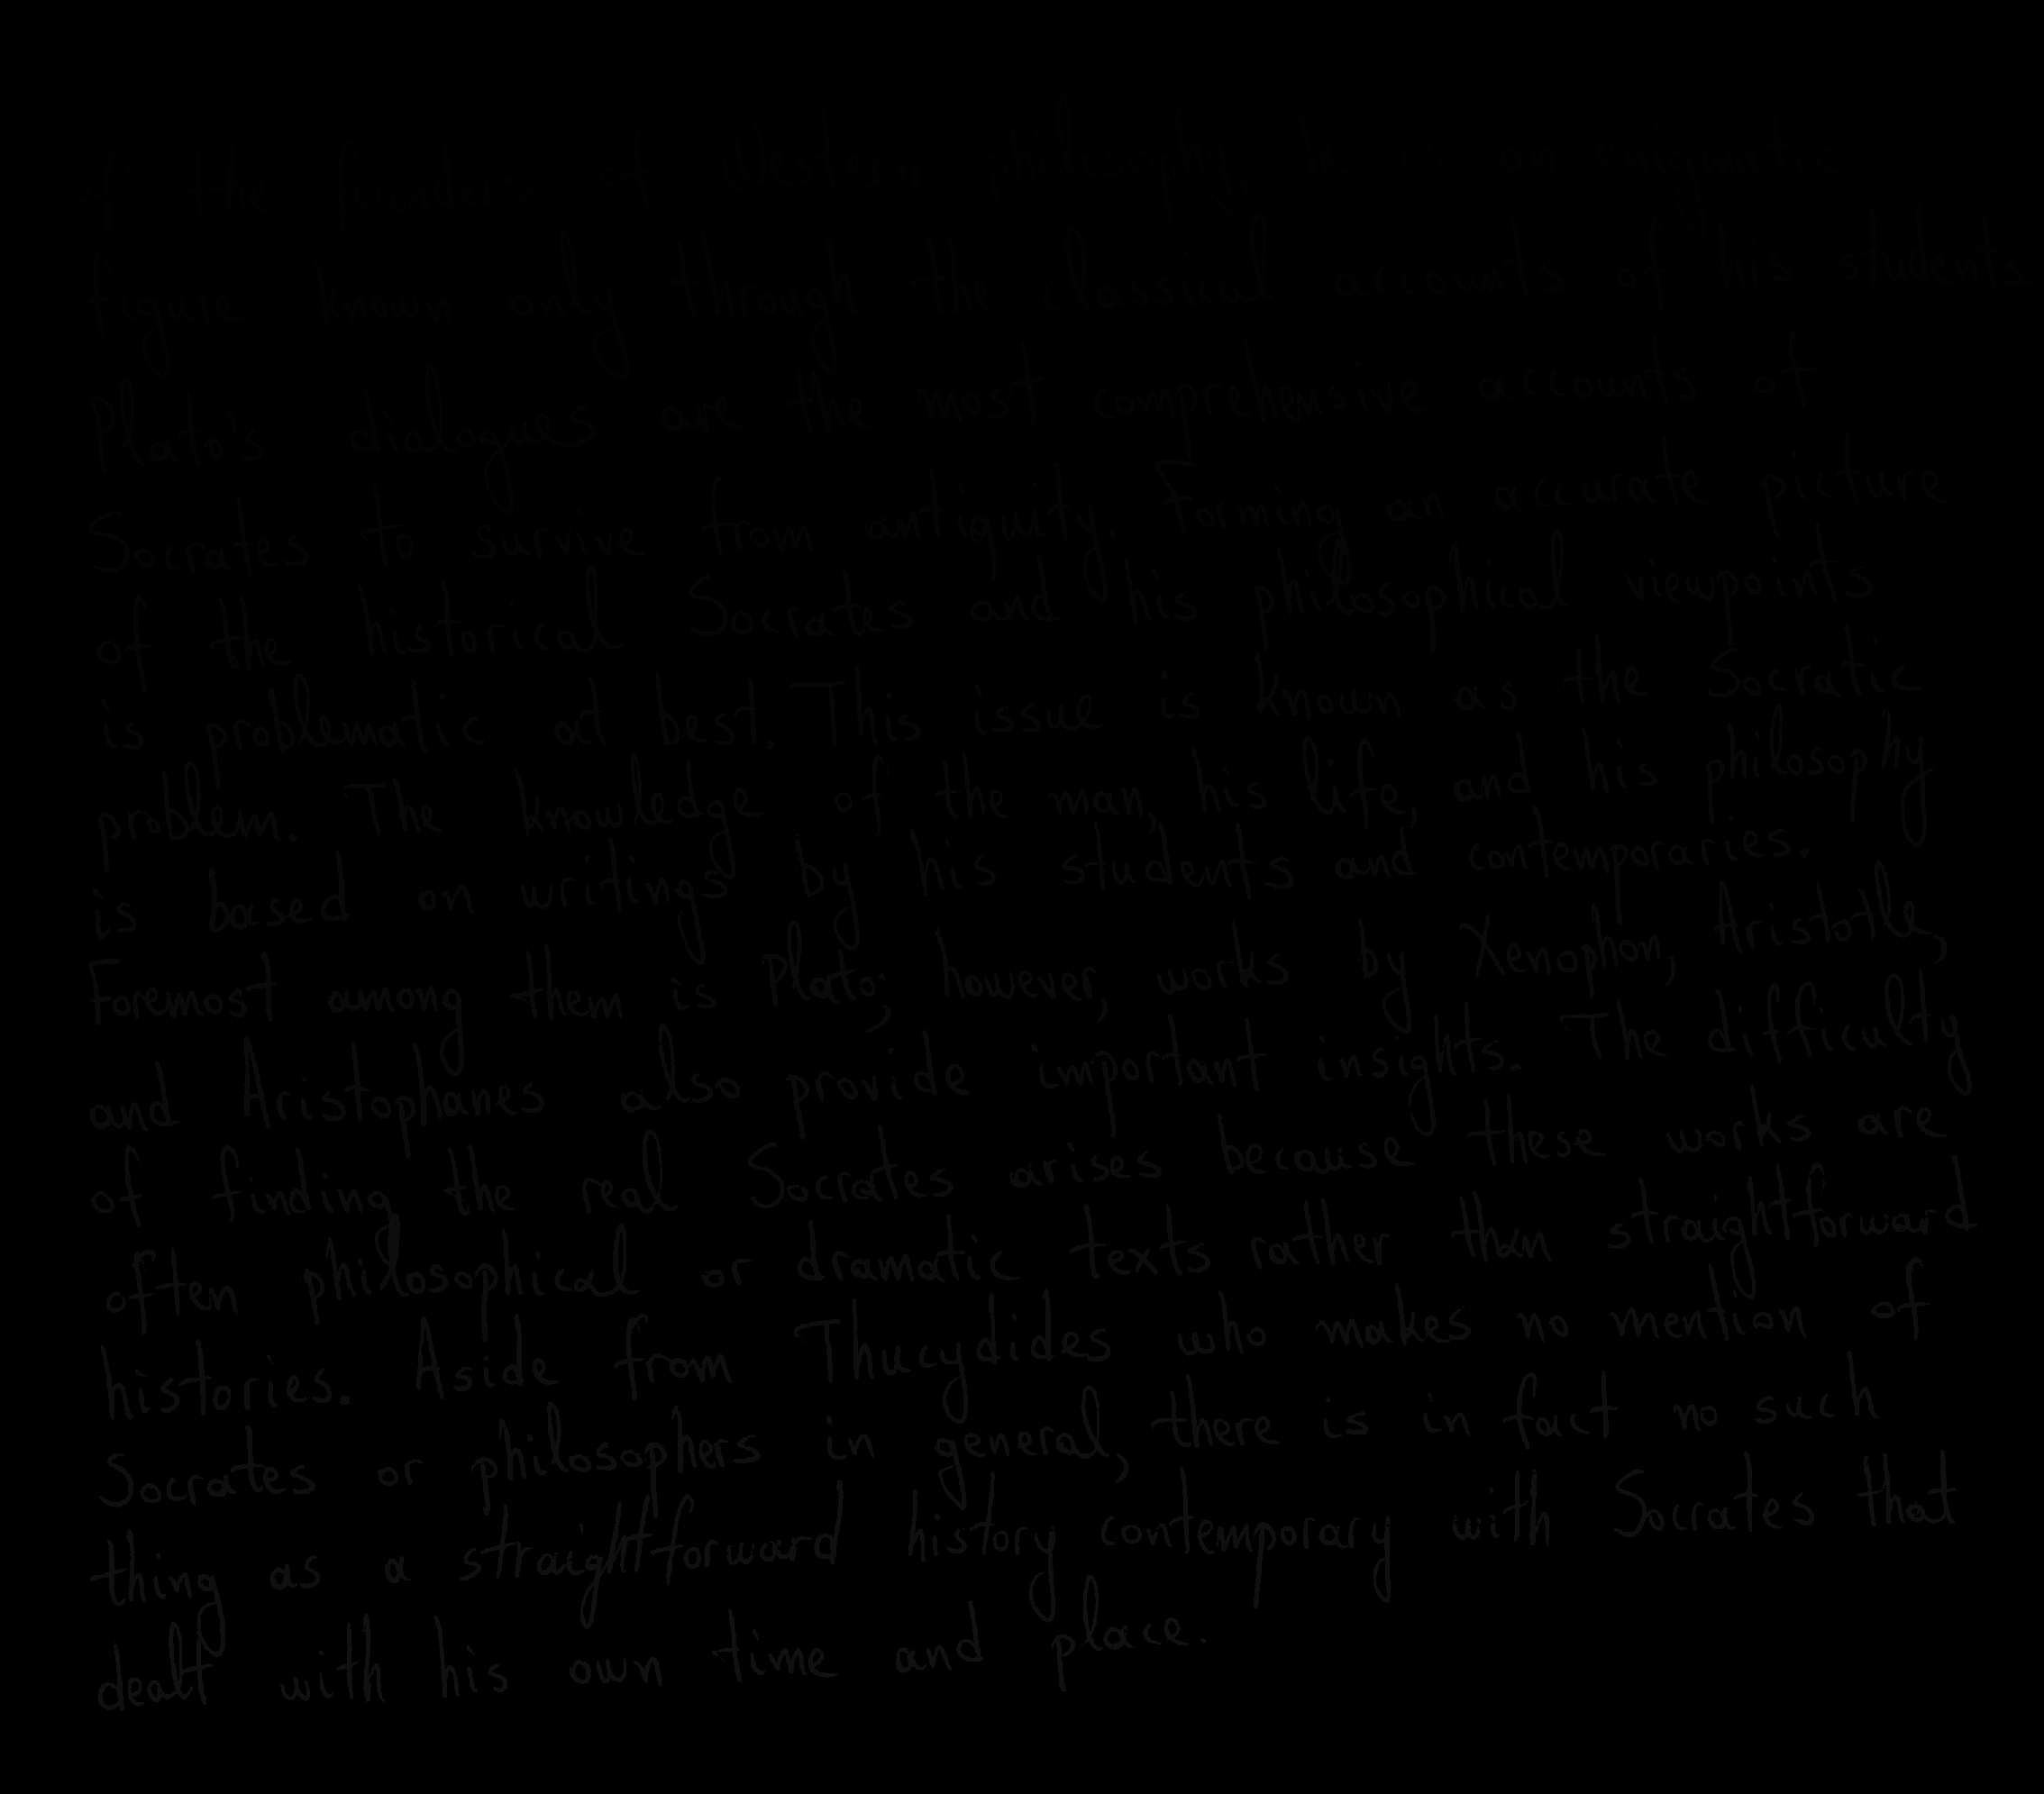 of the founders of Western philosophy, he is an enigmatic
figure known only through the classical accounts of his students.
Plato's dialogues are the most comprehensive accounts of
Socrates to survive from antiquity. Forming an accurate picture
of the historical Socrates and his philosophical viewpoints
is problematic at best. This issue is known as the Socratic
problem. The knowledge of the man, his life, and his philosophy
is based on writings by his students and contemporaries.
Foremost among them is Plato; however, works by Xenophon, Aristotle,
and Aristophanes also provide important insights. The difficulty
of finding the real Socrates arises because these works are
often philosophical or dramatic texts rather than straightforward
histories. Aside from Thucydides who makes no mention of
Socrates or philosophers in general, there is in fact no such
thing as a straightforward history contemporary with Socrates that
dealt with his own time and place.